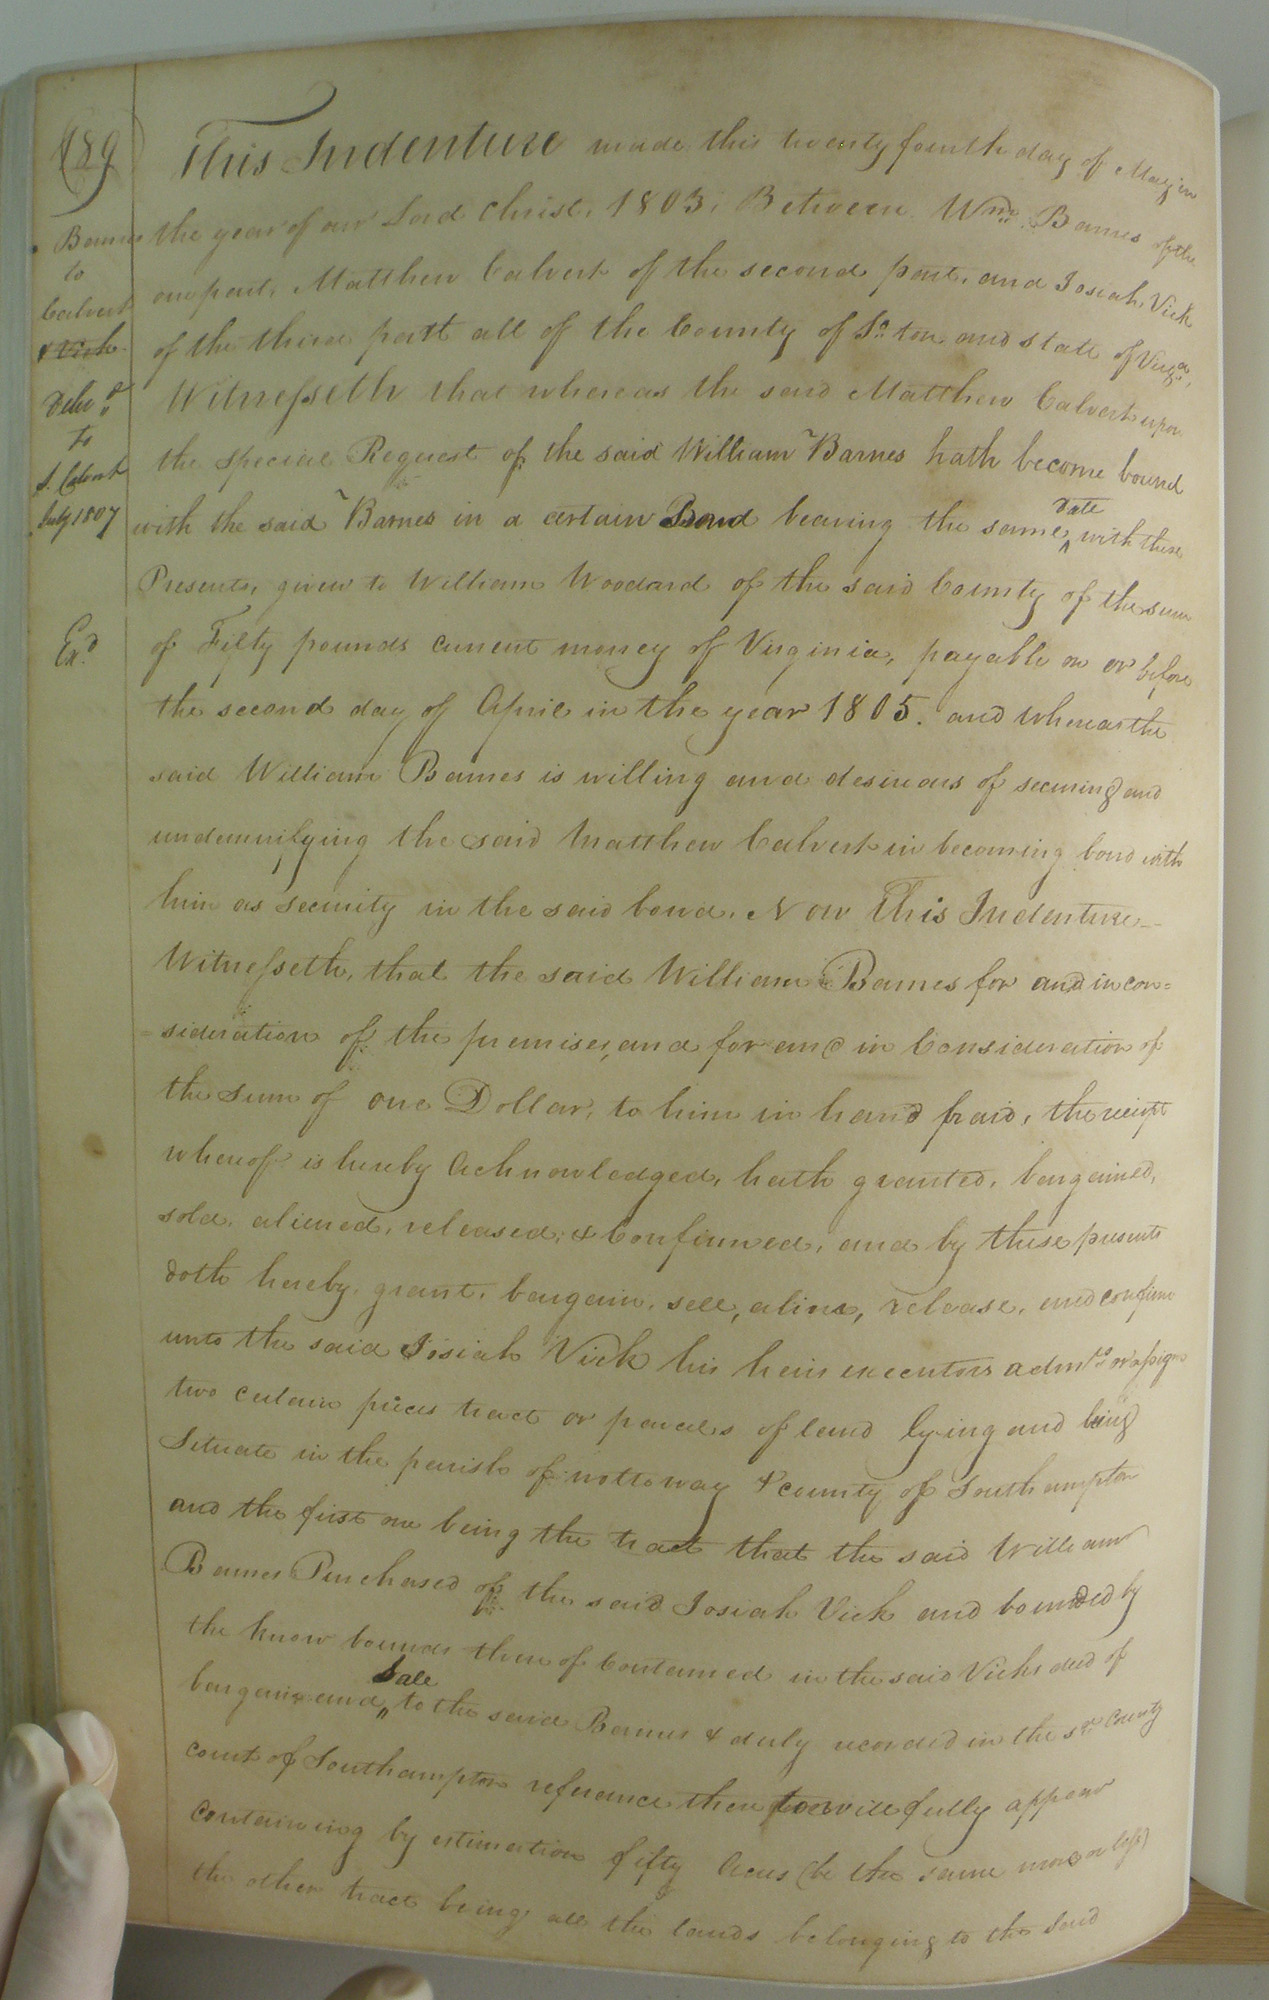 189
Barnes
to
Calvert
& Vick
Deliv.d
to
S. Calvert
July 1807
Ex.d
This Indenture made this twenty fourth day of May in
the year of our Lord Christ, 1803, Between Wm. Barnes of the
one part, Matthew Calvert of the second part, and Josiah Vick
of the third part all of the County of So. ton and state of Virga,
Witnesseth that whereas the said Matthew Calvert upon
the special Request of the said William Barnes hath become bound
with the said Barnes in a certain Bond bearing the same date with these
Presents, given to William Woodard of the said County of the sum
of Fifty pounds current money of Virginia, payable on or before
the second day of April in the year 1805. and whereas the
said William Barnes is willing and desirous of securing and
undemnifying the said Matthew Calvert in becoming bond with
him as security in the said bond. Now This Indenture
Witnesseth, that the said William Barnes for and in con=
sideration of the premises, and for and in Consideration of
the sum of one Dollar, to him in hand paid, the receipt
whereof is hereby acknowledged, hath granted, bargained,
sold, aliened, released, & Confirmed, and by these presents
doth hereby, grant, bargain, sell, aline, release, and confirm
unto the said Josiah Vick his heirs executors admrs or assigns
two certain pieces tract or parcels of land lying and being
Situate in the parish of nottoway & county of Southampton
and the first one being the tract that the said William
Barnes Purchased of the said Josiah Vick and bounded by
the know bounds thereof Contained in the said Vicks deed of
bargain and Sale to the said Barnes & duly recorded in the sd. County
court of Southampton referance there too will fully appear
Containing by estimation fifty Acres (be the same more or less)
the other tract being all the lands belonging to the said